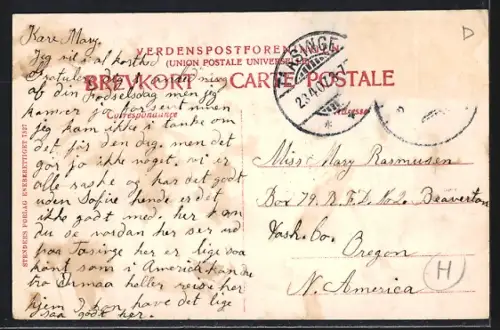 VERDENSPOSTFORENINGEN
(UNION POSTALE UNIVERSELLE)
BREVKORT - CARTE POSTALE
Correspondance
Adresse
TAASINGE
23.4.07
STENDERS FORLAG ENEBERETTIGET 7327
Kære Mary
Jeg vil i al hast
gratulere dig i anledning
af din Fødselsdag men jeg
kommer jo for sent men
jeg kom ikke i tanke om
det før den dig, men det
gør jo ikke noget, vi er
alle raske og har det godt
uden Sofie hende er det
ikke godt med. her kan
du se vordan her ser ud
paa Tasinge her er lige saa
kønt som i Amerika kan du
tro Ermaa heller reise her
hjem I kan have det lige
saa godt her.
Miss Mary Rasmusen
Box 79. R.F.D. No 2. Beaverton
Wash. Co.
Oregon
N. America
H
D